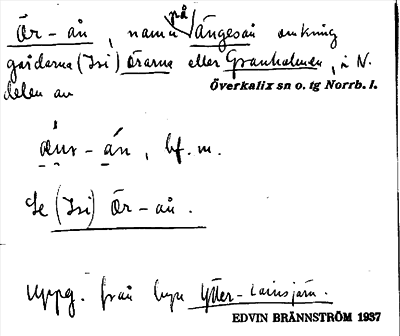 Ör-ån, namn på Ängesån omkring
gårdarna (Isi) örarna eller Granholmen, i N.
delen av Överkalix sn o. tg Norrb. l.
-án, bf. m.
Se (Isi) Ör-ån.
Uppg. från byn Ytter-Lainsjärv.
EDVIN BRÄNNSTRÖM 1937